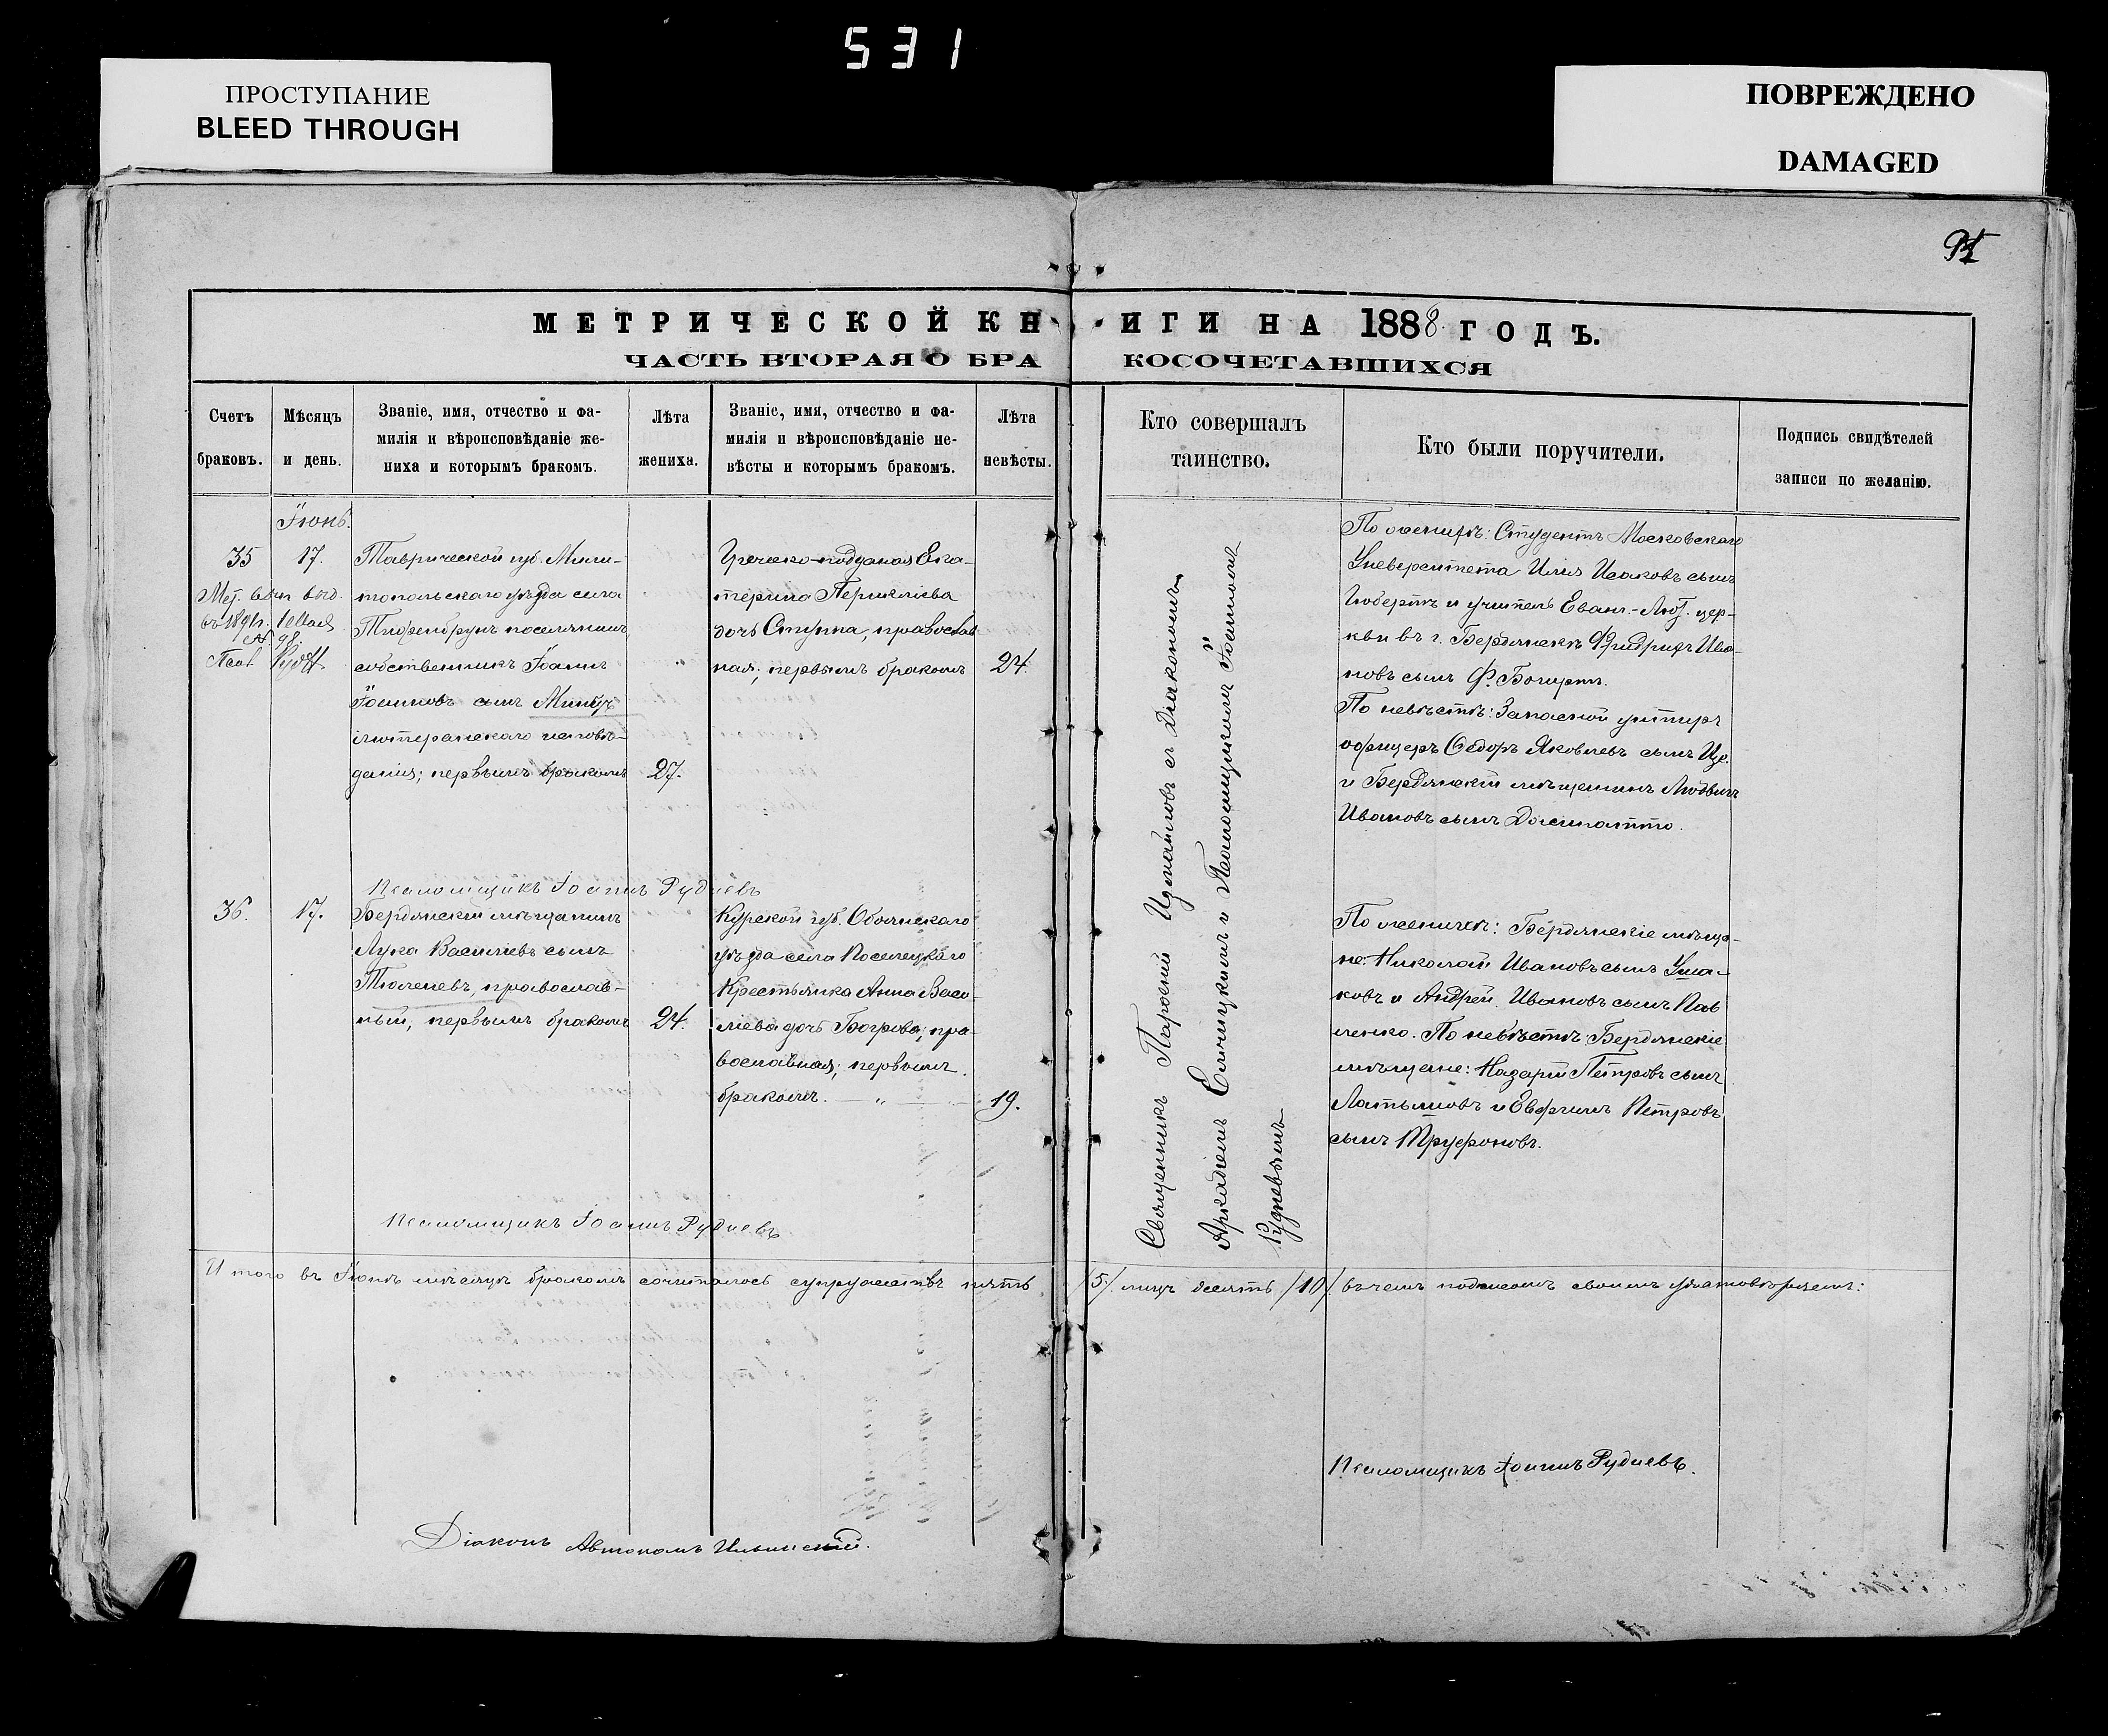 531
ПРОСТУПАНИЕ
BLEED THROUGH
ПОВРЕЖДЕНО
DAMAGED
МЕТРИЧЕСКОЙ КНИГИ НА 1888 ГОДЪ.
ЧАСТЬ ВТОРАЯ О БРАКОСОЧЕТАВШИХСЯ
Счетъ
браковъ.
Мѣсяцъ
и день.
Званіе, имя, отчество и фа-
милія и вѣроисповѣданіе же-
ниха и которымъ бракомъ.
Лѣта
жениха.
Званіе, имя, отчество и фа-
милія и вѣроисповѣданіе не-
вѣсты и которымъ бракомъ.
Лѣта
невѣсты.
Кто совершалъ
таинство.
Кто были поручители.
Подпись свидѣтелей
записи по желанію.
Іюнь.
35
17.
Таврической губ. Мили-
топольскаго уѣзда села
Тифенбрунъ поселянинъ
собственникъ Іоаннъ
Іоанновъ сынъ Минтъ
лютеранскаго исповѣ-
данія; первымъ бракомъ
27.
Гречески-подданая Ека-
терина Периклиева
дочь Ступпа, православ
ная; первымъ бракомъ
24.
По женихѣ: Студентъ Московскаго
Унеиверситета Илія Исаковъ сынъ
Гюбертъ и учитель Еванг.-Лют. цер-
кви въ г. Бердянскѣ Фридрихъ Ива-
новъ сынъ Ф. Богартъ.
По невѣстѣ: Запасной унтиръ
офицеръ Ѳедоръ Яковлевъ сынъ
и Бердянскій мѣщанинъ Людвигъ
Ивановъ сынъ
Псаломщикъ Іоаннъ Рудневъ
36.
17.
Бердянскій мѣщанинъ
Лука Васильевъ сынъ
Тюленевъ, православ-
ный, первымъ бракомъ
24.
Курской губ. Обоянскаго
уѣзда села
Крестьянка Анна Васи-
лиева дочь Богрова; пра-
вославная; первымъ
бракомъ. — „ —
19.
По женихѣ: Бердянскіе мѣща-
не: Николай Ивановъ сынъ Уша-
ковъ и Андрей Ивановъ сынъ Пав
ленко. По невѣстѣ: Бердянскіе
мѣщане: Назарій Петровъ сынъ
Латышовъ и Евфимъ Петровъ
сынъ Труфоновъ.
Священникъ Парѳеній Измайловъ съ Діакономъ
Аркадіемъ и Псаломщикомъ Іоанномъ
Рудневымъ
Псаломщикъ Іоаннъ Рудневъ
Итого въ Іюнѣ мѣсяцѣ бракомъ сочиталось супружествъ пять /5/. лицъ десять /10/. въ чемъ подписомъ своимъ удостовѣряемъ:
Псаломщикъ Іоаннъ Рудневъ.
Діаконъ Автономъ Ильинскій.